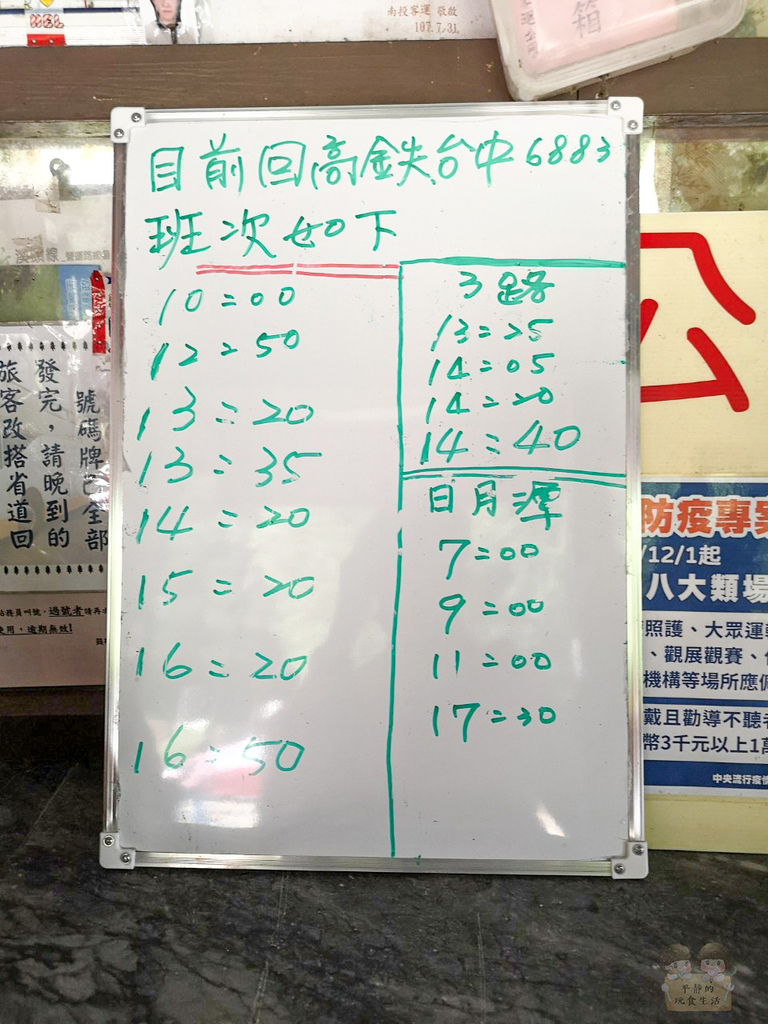 南投客運 敬啟
107.7.31
箱
目前回高鉄台中6883
班次如下
10=00
12=50
13=20
13=35
14=20
15=20
16=20
16=50
3路
13=25
14=05
14=20
14=40
日月潭
7=00
9=00
11=00
17=30
號碼牌已全部
發完，請晚到的
旅客改搭省道回
站務員叫號，過號者請再
使用，逾期無效!
公
防疫專案
/12/1起
八大類場
照護、大眾運
、觀展觀賽、
機構等場所應
戴且勸導不聽者
幣3千元以上1萬
中央流行疫情
平靜的
玩食生活